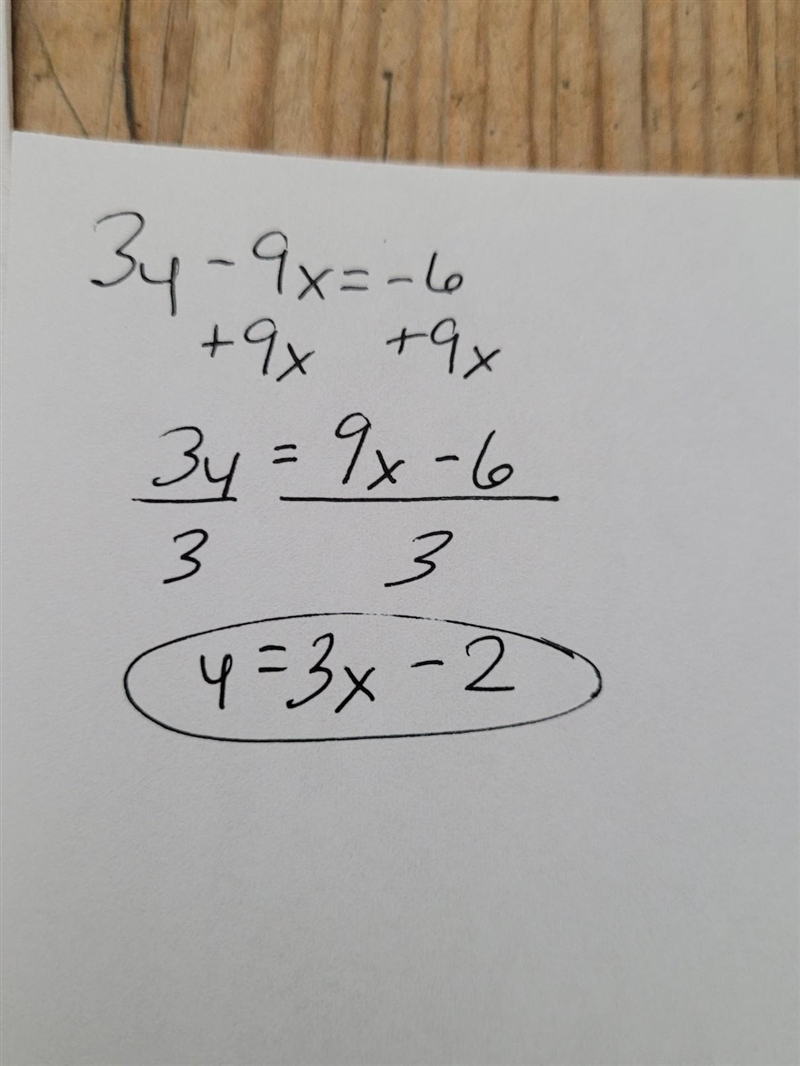 3y - 9x = -6
+9x +9x
3y = 9x - 6
3 3
y = 3x - 2